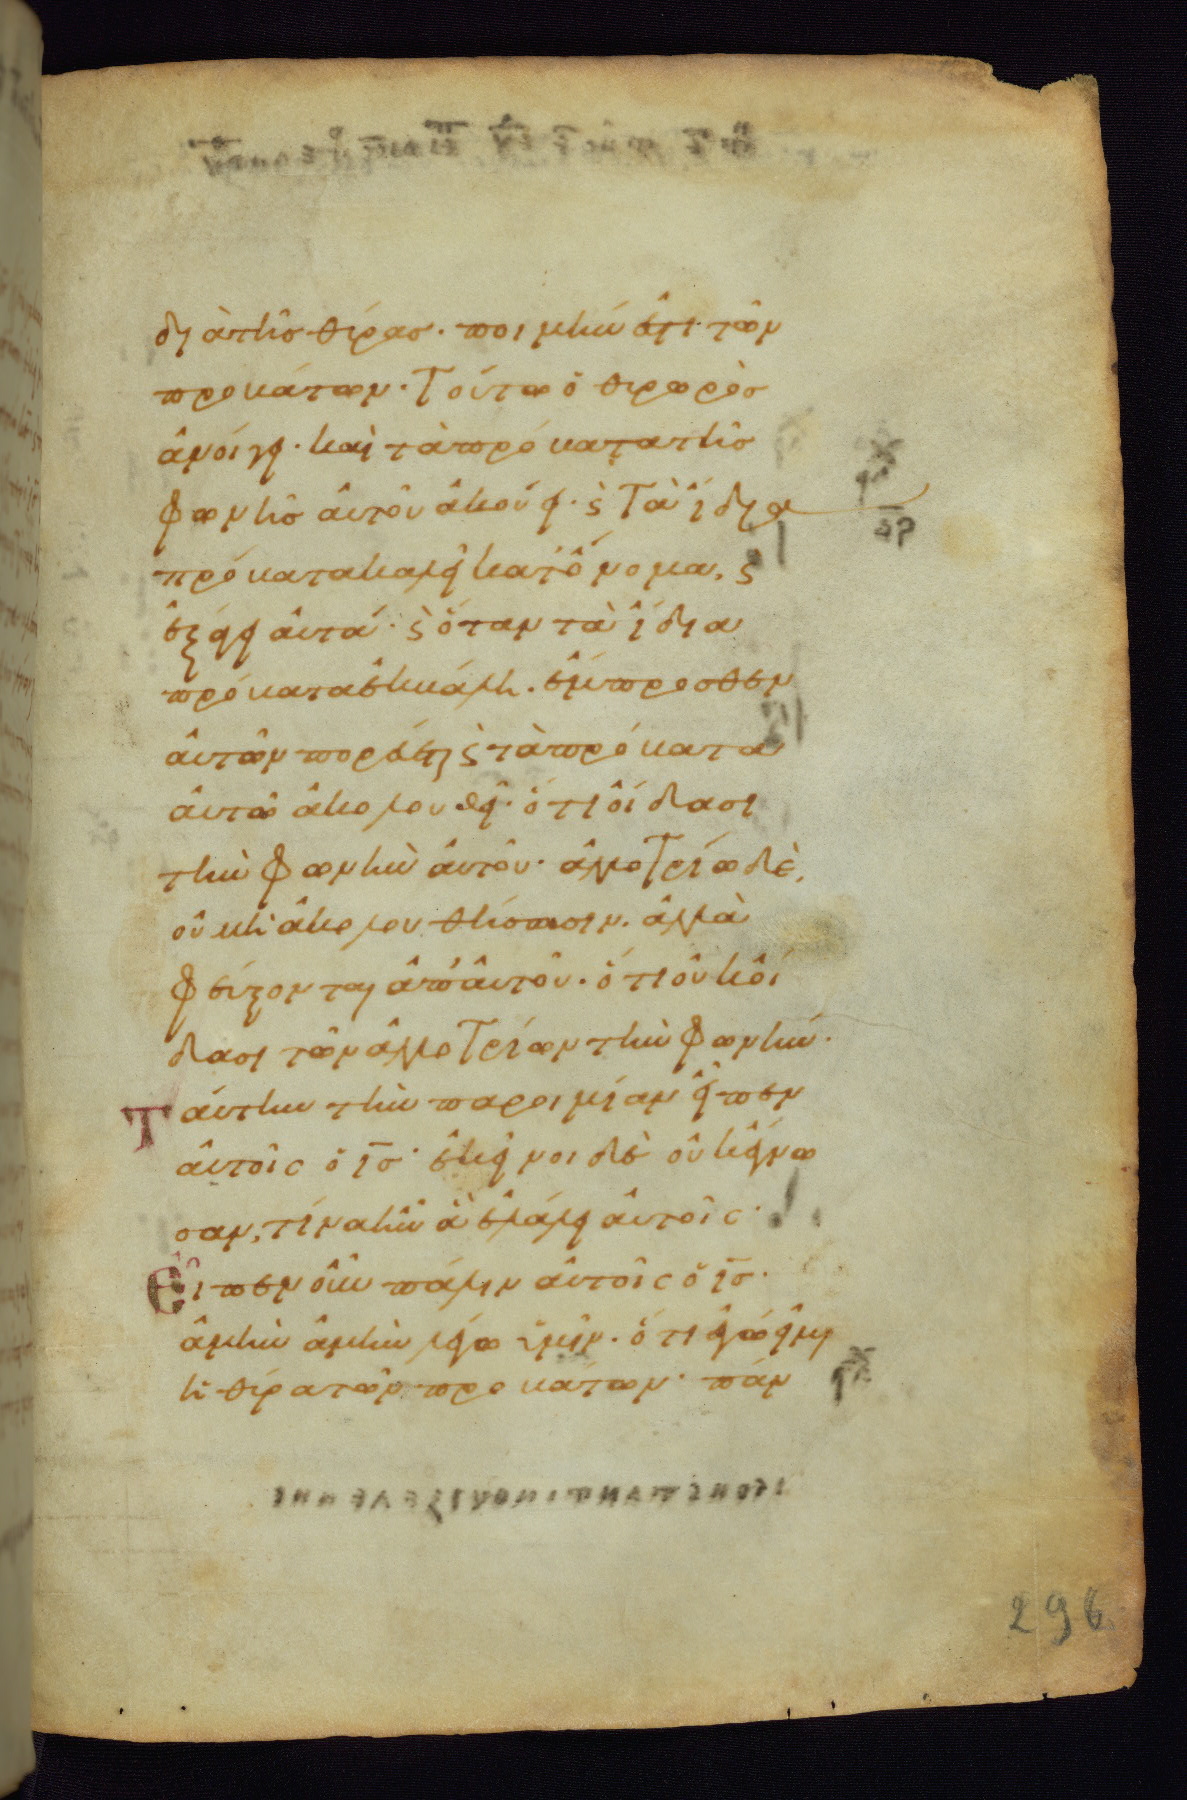 διὰ τῆς θύρας· ποιμήν ἐστι τῶν
προβάτων· τούτω ὁ θυρωρὸς
ἀνοίγει· καὶ τὰ πρόβατα τῆς
φωνῆς αὐτοῦ ἀκούει· ϛ τὰ ἴδια
πρόβατα καλεῖ κατ' ὄνομα, ϛ
ἐξάγει αὐτά· ϛ ὅταν τὰ ἴδια
πρόβατα ἐκβάλη· ἔμπροσθεν
αὐτῶν πορεύεται ϛ τὰ πρόβατα
αὐτῶ ἀκολουθεῖ· ὅτι οἴδασι
τὴν φωνὴν αὐτοῦ· ἀλλοτρίω δὲ,
οὐ μὴ ἀκολουθήσωσιν· ἀλλὰ
φεύξονται ἀπ' αὐτοῦ· ὅτι οὐκ οἴ
δασι τῶν ἀλλοτρίων τὴν φωνήν·
Ταύτην τὴν παροιμίαν εἶπεν
αὐτοῖς ὁ ις· ἐκεῖνοι δὲ οὐκ ἔγνω
σαν, τίνα ἦν ἃ ἐλάλει αὐτοῖς·
Εἶπεν οὖν πάλιν αὐτοῖς ὁ ις·
ἀμὴν ἀμὴν λέγω ὑμῖν· ὅτι ἐγώ εἰμι
ἡ θύρα τῶν προβάτων· πάν
296